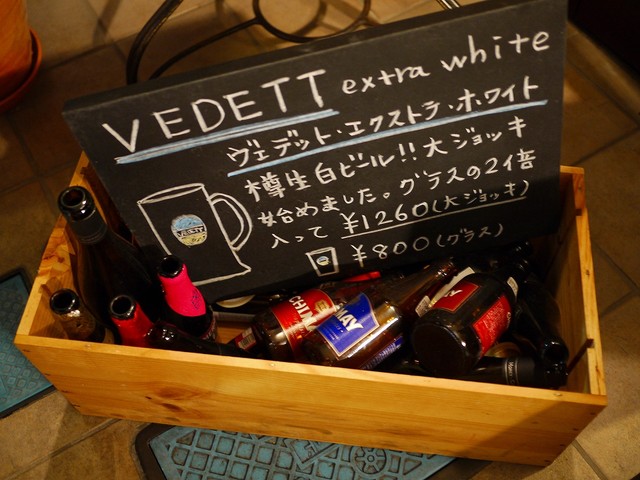 VEDETT extra white
ヴェデット・エクストラ・ホワイト
樽生白ビール!!大ジョッキ
始めました。グラスの2倍
入って ¥1260(大ジョッキ)
¥800(グラス)
VEDETT
CHIM
MAY